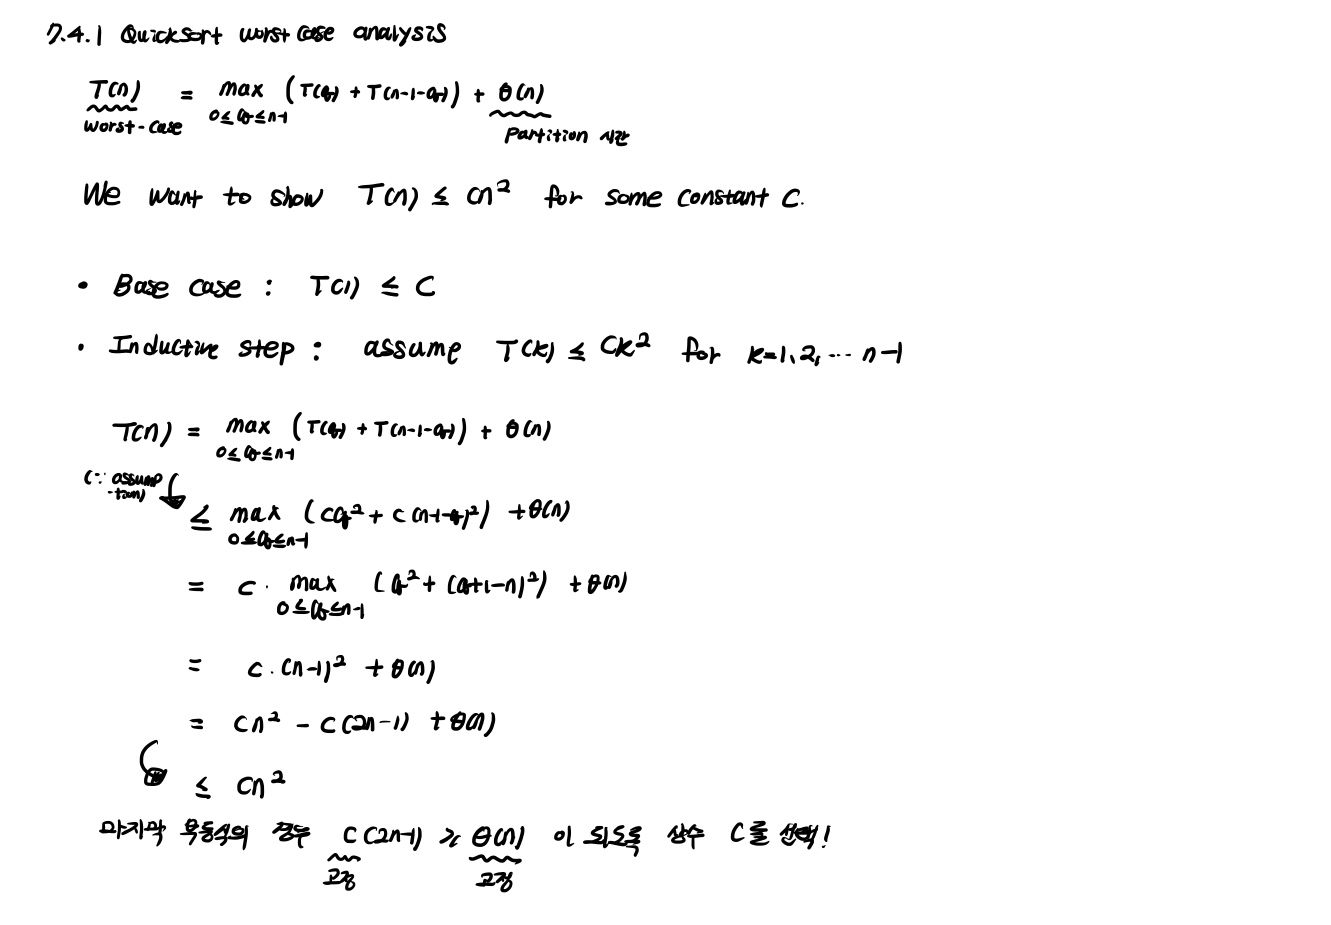 7.4.1 Quicksort worst case analysis
T(n) = max (T(q) + T(n-1-q)) + θ(n)
0≤q≤n-1
worst-case
Partition 시간
We want to show T(n) ≤ cn² for some constant C.
• Base case : T(1) ≤ C
• Inductive step : assume T(k) ≤ Ck² for k=1,2,… n-1
T(n) = max (T(q) + T(n-1-q)) + θ(n)
0≤q≤n-1
(∵ assump
-tion)
≤ max (cq² + c(n-1-q)²) + θ(n)
0≤q≤n-1
= c · max (q² + (q+1-n)²) + θ(n)
0≤q≤n-1
= c · (n-1)² + θ(n)
= cn² - c(2n-1) + θ(n)
≤ cn²
마지막 부등식의 경우 c(2n-1) ≥ θ(n) 이 되도록 상수 C를 선택!
고정
고정